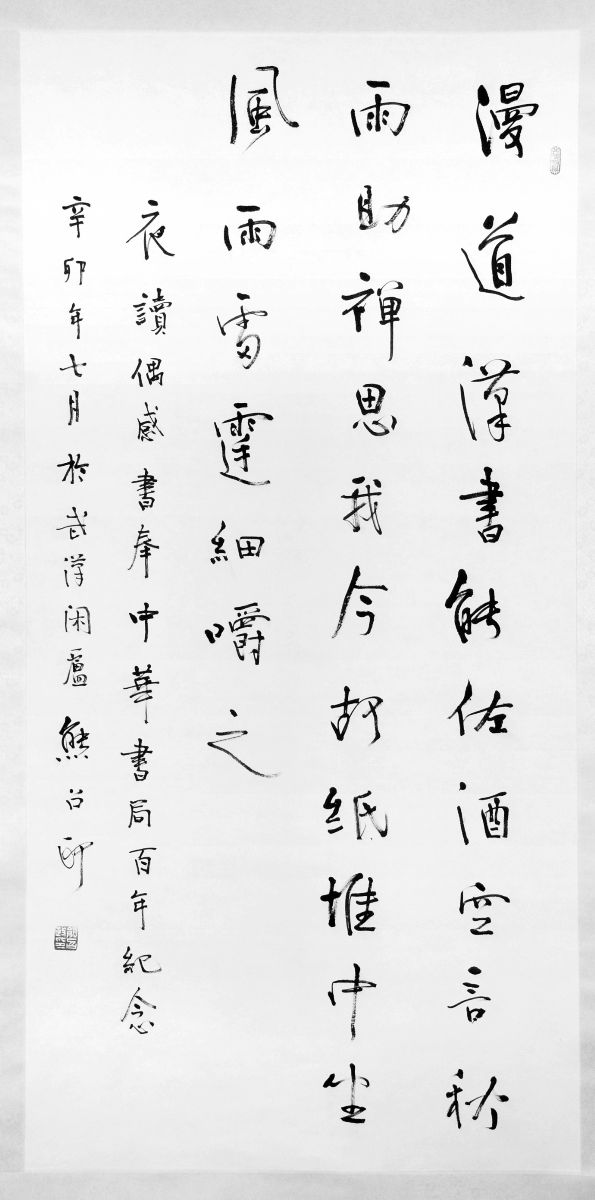 漫道漢書能佐酒空言秋
雨助禪思我今故紙堆中坐
風雨雷霆細嚼之
夜讀偶感書奉中華書局百年紀念
辛卯年七月於武漢閑廬熊召政